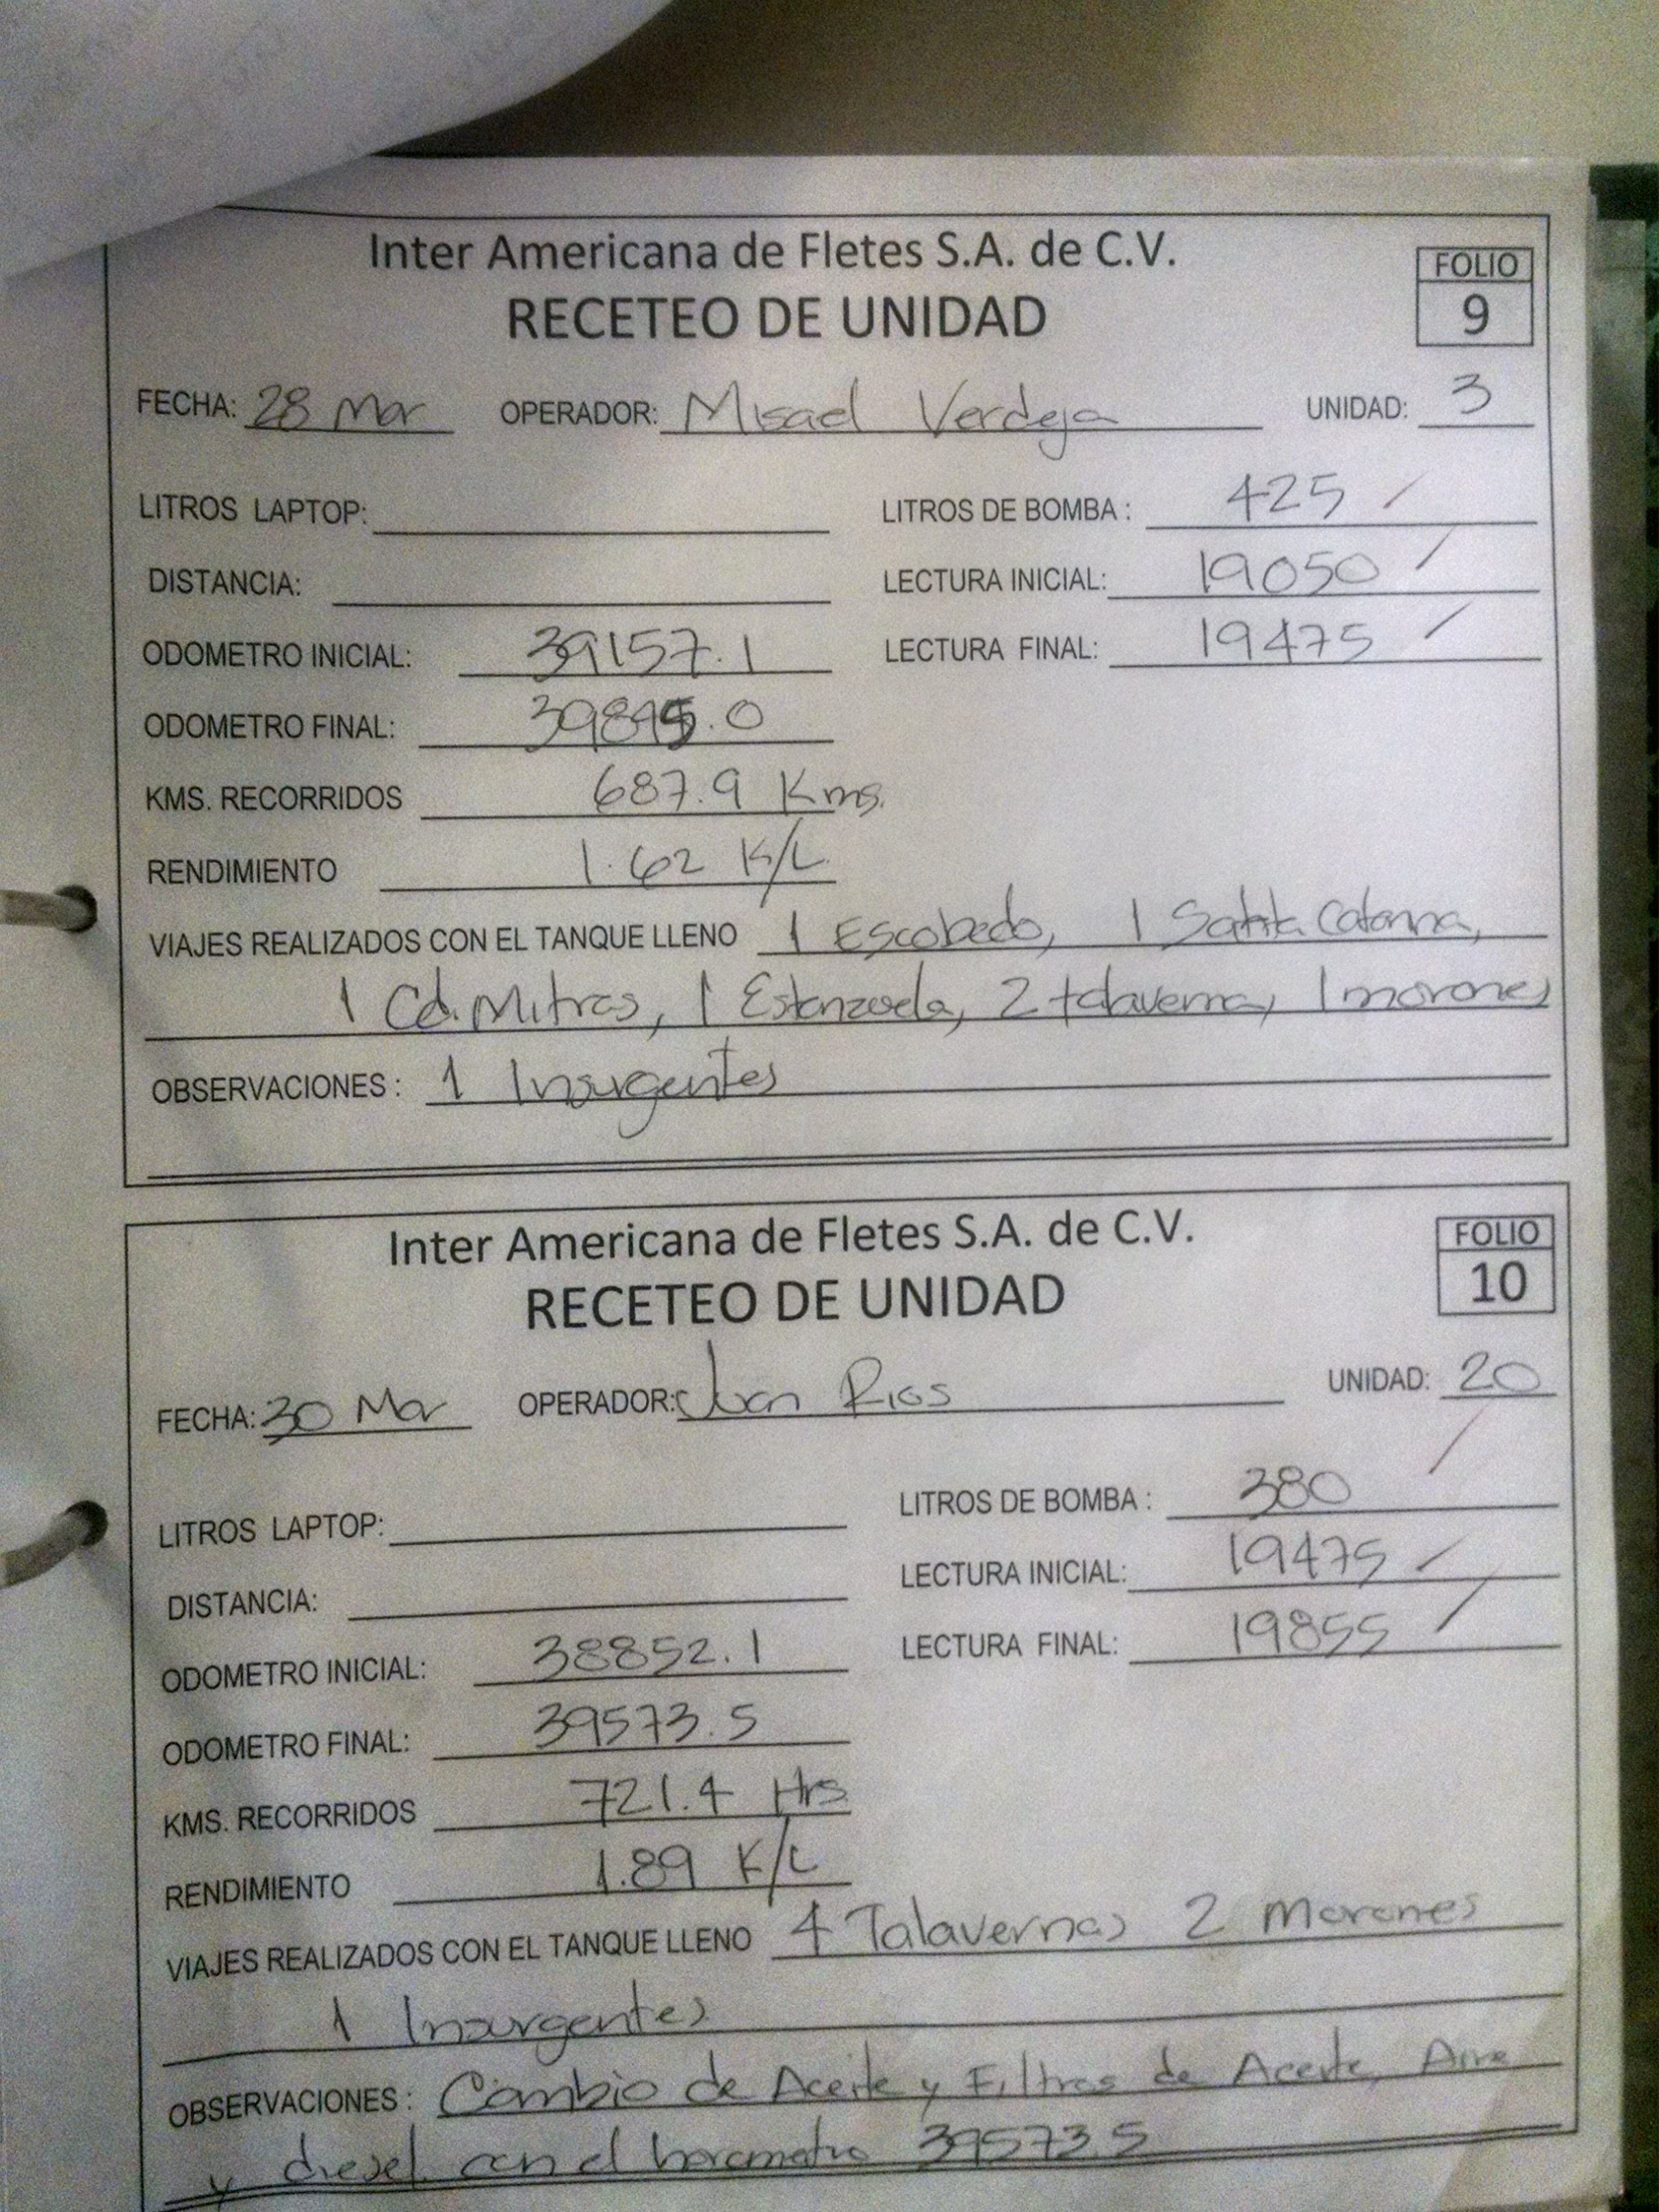 Inter Americana de Fletes S.A. de C.V.
RECETEO DE UNIDAD
FOLIO
9
FECHA: 28 Mar OPERADOR: Misael Verdeja UNIDAD: 3
LITROS LAPTOP: LITROS DE BOMBA : 425
DISTANCIA: LECTURA INICIAL: 19050
ODOMETRO INICIAL: 39157.1 LECTURA FINAL: 19475
ODOMETRO FINAL: 39845.0
KMS. RECORRIDOS 687.9 Kms.
RENDIMIENTO 1.62 K/L
VIAJES REALIZADOS CON EL TANQUE LLENO 1 Escobedo, 1 Santa Catarina,
1 Cd. Mitras, 1 Estanzuela, 2 talaverna, 1 morones
OBSERVACIONES : 1 Insurgentes
Inter Americana de Fletes S.A. de C.V.
RECETEO DE UNIDAD
FOLIO
10
FECHA: 30 Mar OPERADOR: Juan Rios UNIDAD: 20
LITROS LAPTOP: LITROS DE BOMBA : 380
DISTANCIA: LECTURA INICIAL: 19475
ODOMETRO INICIAL: 38852.1 LECTURA FINAL: 19855
ODOMETRO FINAL: 39573.5
KMS. RECORRIDOS 721.4 Hrs
RENDIMIENTO 1.89 K/L
VIAJES REALIZADOS CON EL TANQUE LLENO 4 Talavernas 2 Morones
1 Insurgentes
OBSERVACIONES : Cambio de Aceite y Filtros de Aceite, Aire
y diesel con el horometro 39573.5